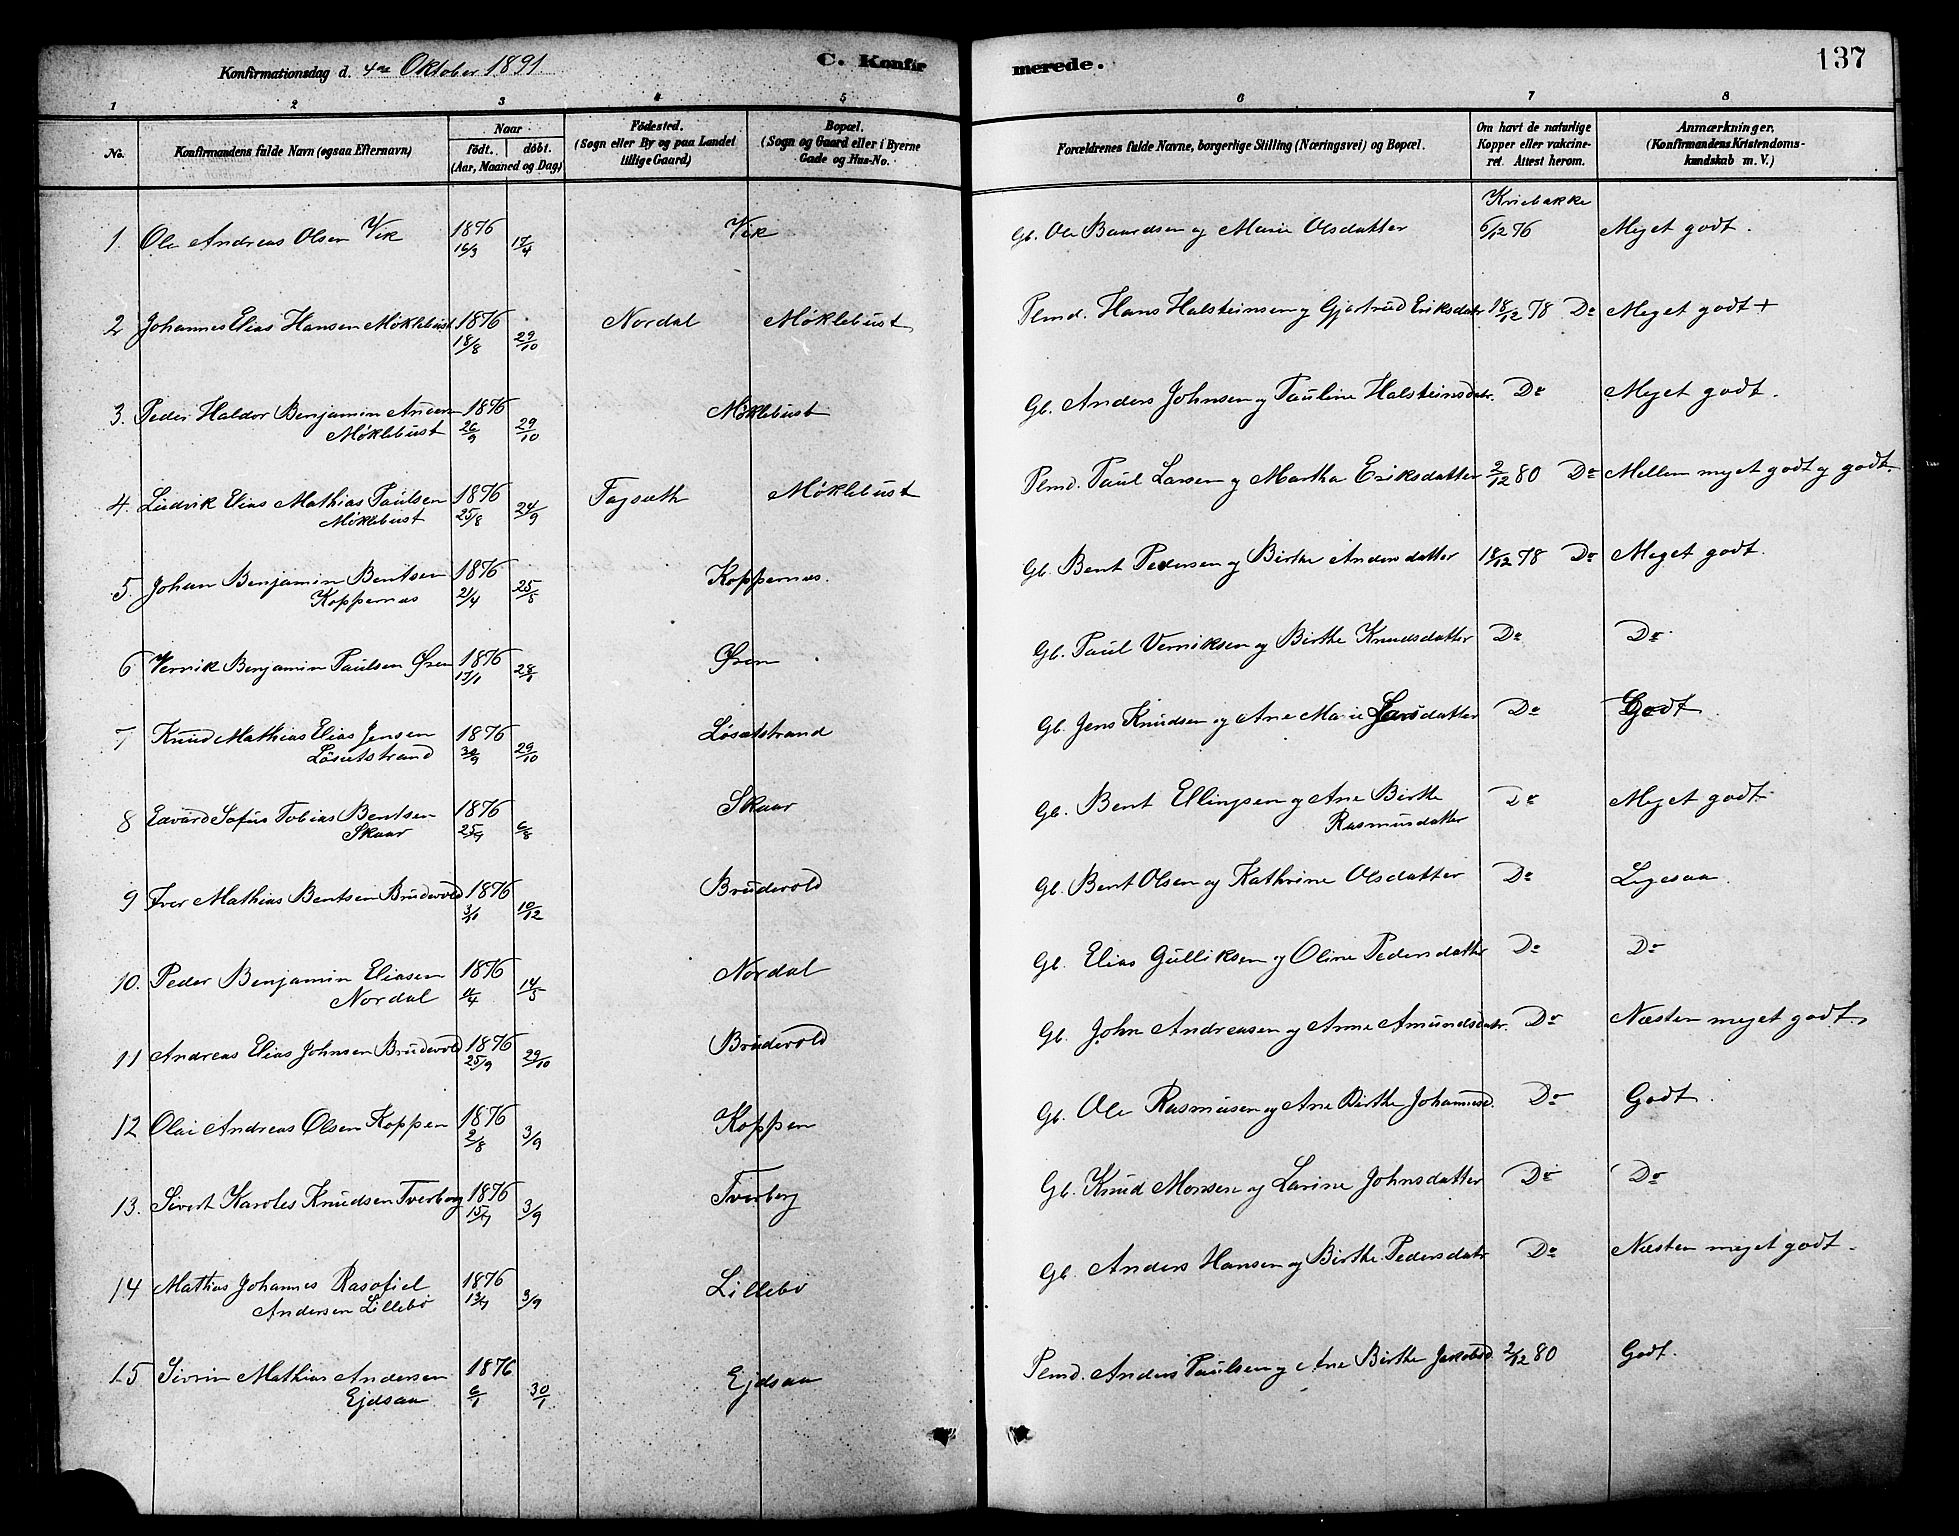 Konfirmationsdag d. 4de Oktober 1891.
C. Konfirmerede.
137
1 2 3 4 5 6 7 8
No.
Konfirmandens fulde Navn (ogsaa Efternavn)
Naar
födt. döbt.
(Aar, Maaned og Dag)
Födested.
(Sogn eller By og paa Landet
tillige Gaard)
Bopæl.
(Sogn og Gaard eller i Byerne
Gade og Hus-No.
Forældrenes fulde Navne, borgerlige Stilling (Næringsvei) og Bopæl.
Om havt de naturlige
Kopper eller vakcineret. Attest herom.
Anmærkninger.
(Konfirmandens Kristendomskundskab m. V.)
Kriebakke
1. Ole Andreas Olsen Vik 1876 16/3 17/4 Vik Gb. Ole Baardsen og Marie Olsdatter 6/12 76 Meget godt.
2 Johannes Elias Hansen Möklebust 1876 18/8 29/10 Nordal Möklebust Plmd. Hans Halsteinsen og Gjertrud Eriksdatr. 18/12 78 Do Meget godt +
3. Peder Haldor Benjamin Andersen 1876 26/9 29/10 Möklebust Gb. Anders Johnsen og Pauline Halsteinsdatr. Do Meget godt.
Möklebust
4. Ludvik Elias Mathias Paulsen 1876 25/8 24/9 Fagsæth Möklebust Plmd. Paul Larsen og Martha Eriksdatter 2/12 80 Do Mellem meget godt og godt.
Möklebust
5. Johan Benjamin Bentsen 1876 21/4 25/5 Koppernæs. Gb. Bent Pedersen og Birthe Andersdatter 18/12 78 Do Meget godt.
Koppernæs
6. Vernik Benjamin Paulsen Ören 1876 17/1 28/1 Ören Gb. Paul Verniksen og Birthe Knudsdatter Do Do.
7 Knud Mathias Elias Jensen 1876 30/9 29/10 Lösætstrand Gb. Jens Knudsen og Ane Marie Larsdatter Do Godt
Lösætstrand
8 Edvard Sofus Tobias Bentsen 1876 25/7 6/8 Skaar Gb. Bent Ellingsen og Ane Birthe Do Meget godt.
Skaar Rasmusdatter
9 Iver Mathias Bentsen Brudevold 1876 10/12 Brudevold Gb. Bent Olsen og Kathrine Olsdatter Do Ligesaa
10. Peder Benjamin Eliasen 1876 14/5 Nordal Gb. Elias Gulliksen og Oline Pedersdatter Do Do
Nordal
11 Andreas Elias Johnsen Brudevold 1876 25/9 29/10 Brudevold Gb. John Andreasen og Anne Amundsdatr. Do Næsten meget godt.
12 Olai Andreas Olsen Koppen 1876 2/8 3/9 Koppen Gb. Ole Rasmusen og Ane Birthe Johannesd. Do Godt.
13. Sivert Karoles Knudsen Tverberg 1876 15/7 3/9 Tverberg Gb. Knud Monsen og Larine Johnsdatter Do Do
14 Mathias Johannes Rasofiel 1876 13/7 3/9 Lillebö Gb. Anders Hansen og Birthe Pedersdatr. Do Næsten meget godt.
Andersen Lillebö
15 Sivrin Mathias Andersen 1876 6/1 30/1 Ejdsaa Plmd. Anders Paulsen og Ane Birthe Jakobsd. 2/12 80 Godt.
Ejdsaa